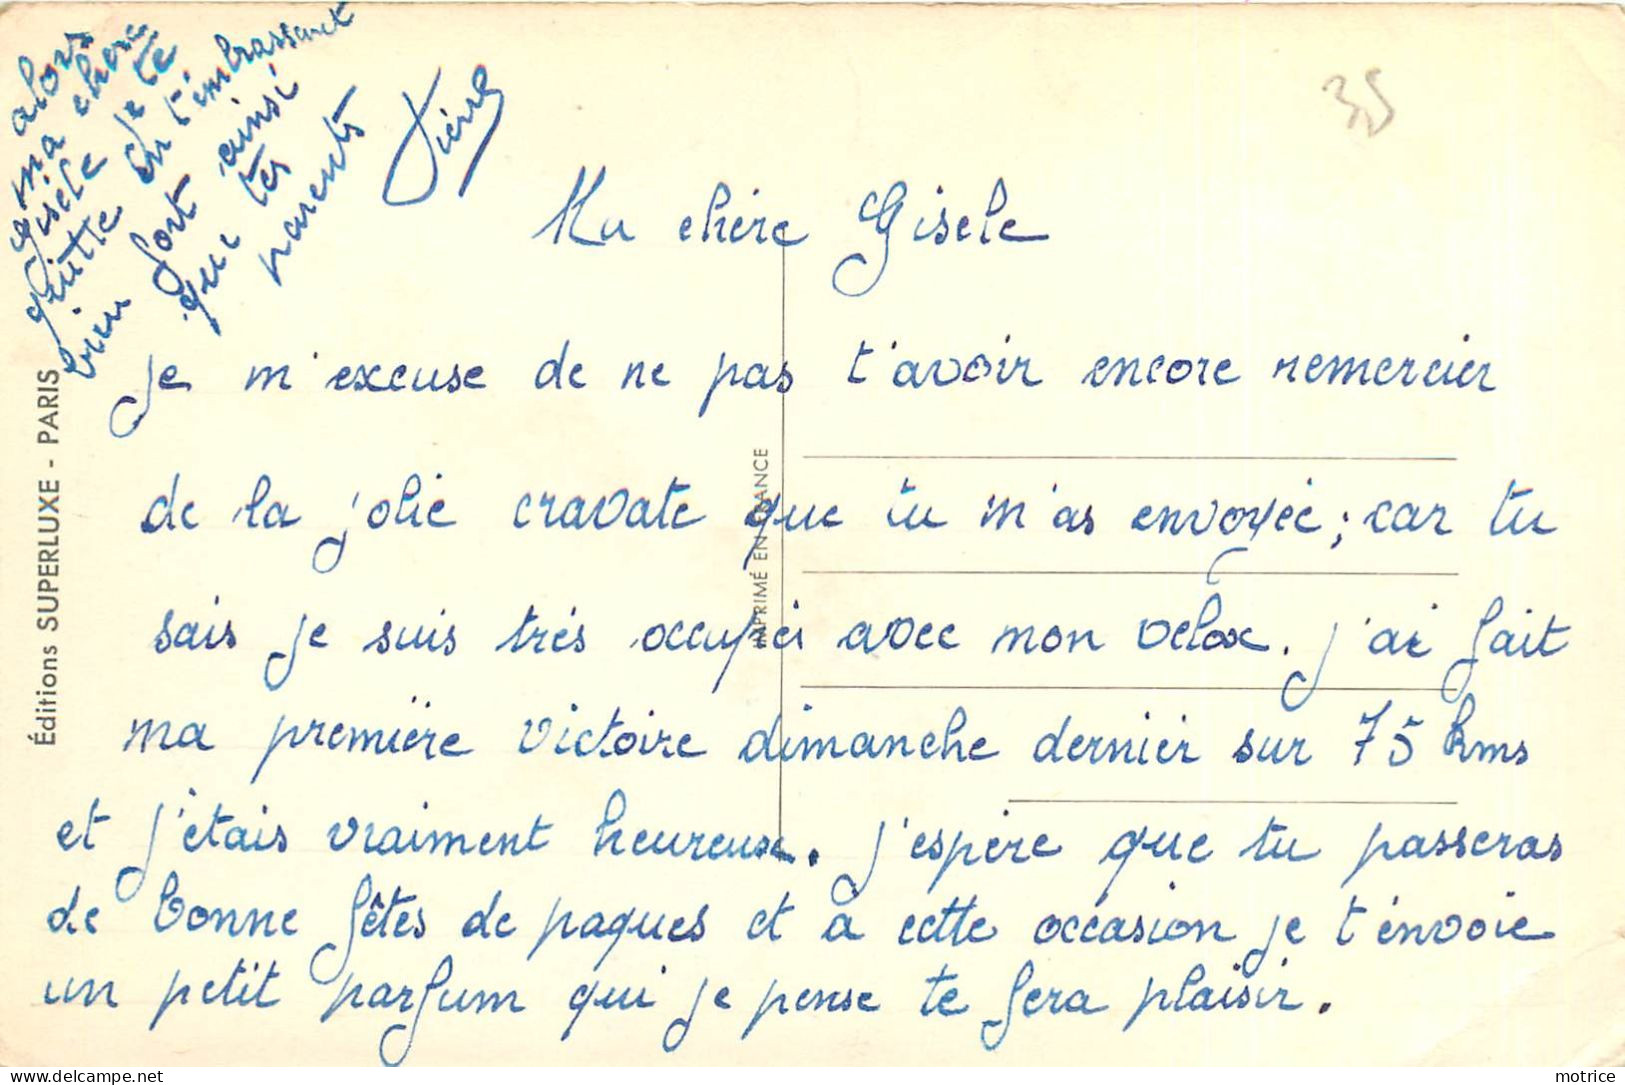 35
Ma chère Gisele
je m'excuse de ne pas t'avoir encore remercier
de la jolie cravate que tu m'as envoyée; car tu
sais je suis trés occupéi avec mon velox. j'ai fait
ma première victoire dimanche dernier sur 75 kms
et j'etais vraiment heureuse. j'espére que tu passeras
de bonne fêtes de paques et a cette occasion je t'envoie
un petit parfum qui je pense te fera plaisir.
alors
ma chere
Gisele je te
quitte en t'embrassant
bien fort ainsi
que tes
parents
Pierre
Éditions SUPERLUXE - PARIS
IMPRIMÉ EN FRANCE
delcampe.net
motrice